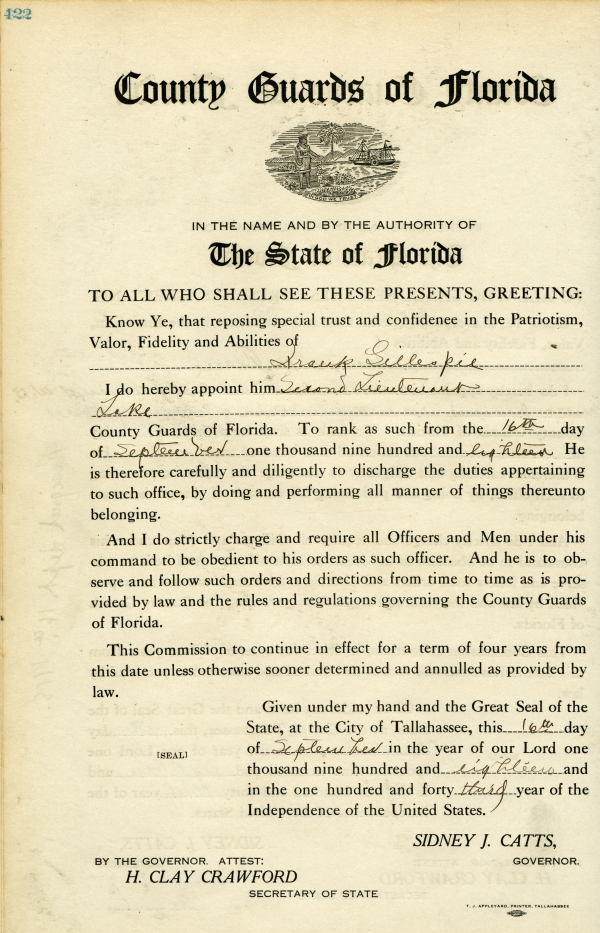 422
County Guards of Florida
IN GOD WE TRUST
IN THE NAME AND BY THE AUTHORITY OF
The State of Florida
TO ALL WHO SHALL SEE THESE PRESENTS, GREETING:
Know Ye, that reposing special trust and confidenee in the Patriotism,
Valor, Fidelity and Abilities of
Frank Gillespie
I do hereby appoint him Second Lieutenant
Lake
County Guards of Florida. To rank as such from the 16th day
of September one thousand nine hundred and eighteen He
is therefore carefully and diligently to discharge the duties appertaining
to such office, by doing and performing all manner of things thereunto
belonging.
And I do strictly charge and require all Officers and Men under his
command to be obedient to his orders as such officer. And he is to ob-
serve and follow such orders and directions from time to time as is pro-
vided by law and the rules and regulations governing the County Guards
of Florida.
This Commission to continue in effect for a term of four years from
this date unless otherwise sooner determined and annulled as provided by
law.
Given under my hand and the Great Seal of the
State, at the City of Tallahassee, this 16th day
[SEAL] of September in the year of our Lord one
thousand nine hundred and eighteen and
in the one hundred and forty third year of the
Independence of the United States.
SIDNEY J. CATTS,
BY THE GOVERNOR. ATTEST: GOVERNOR.
H. CLAY CRAWFORD
SECRETARY OF STATE
T. J. APPLEYARD, PRINTER, TALLAHASSEE